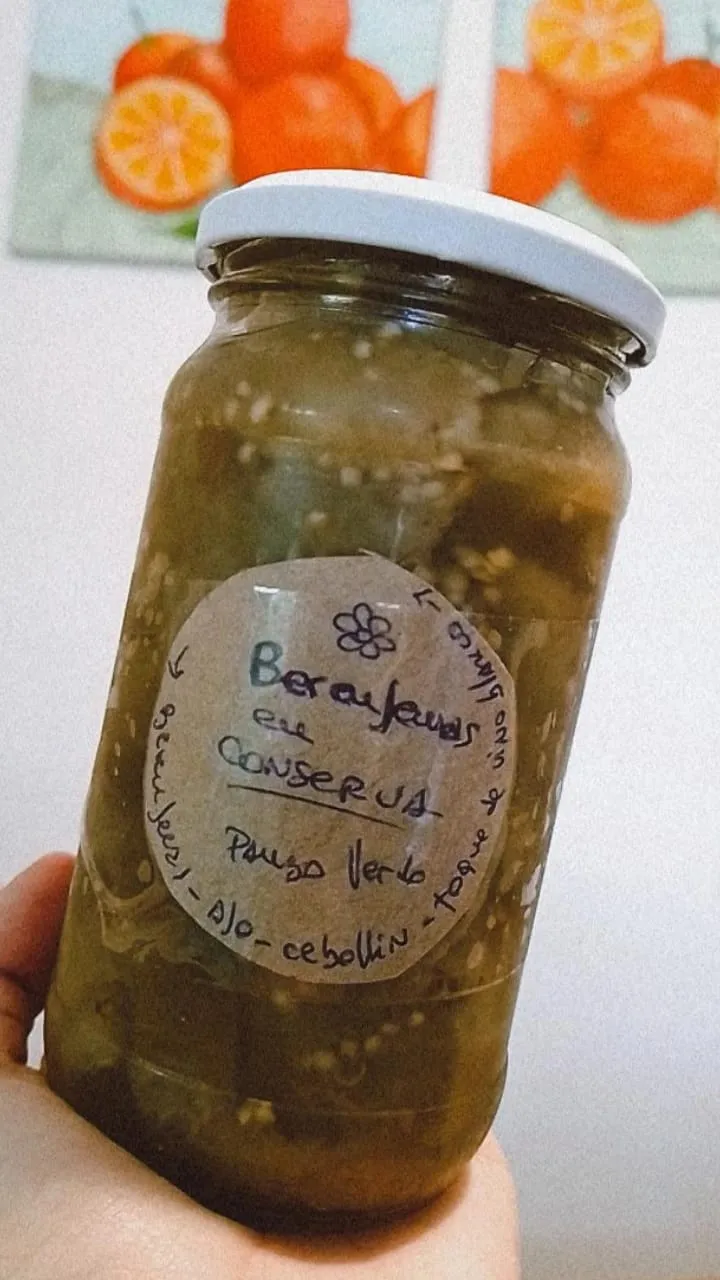 Berenjenas
en
CONSERVA
Panza Verde
Berenjenas - AJO - cebollin - toque de vino blanco -